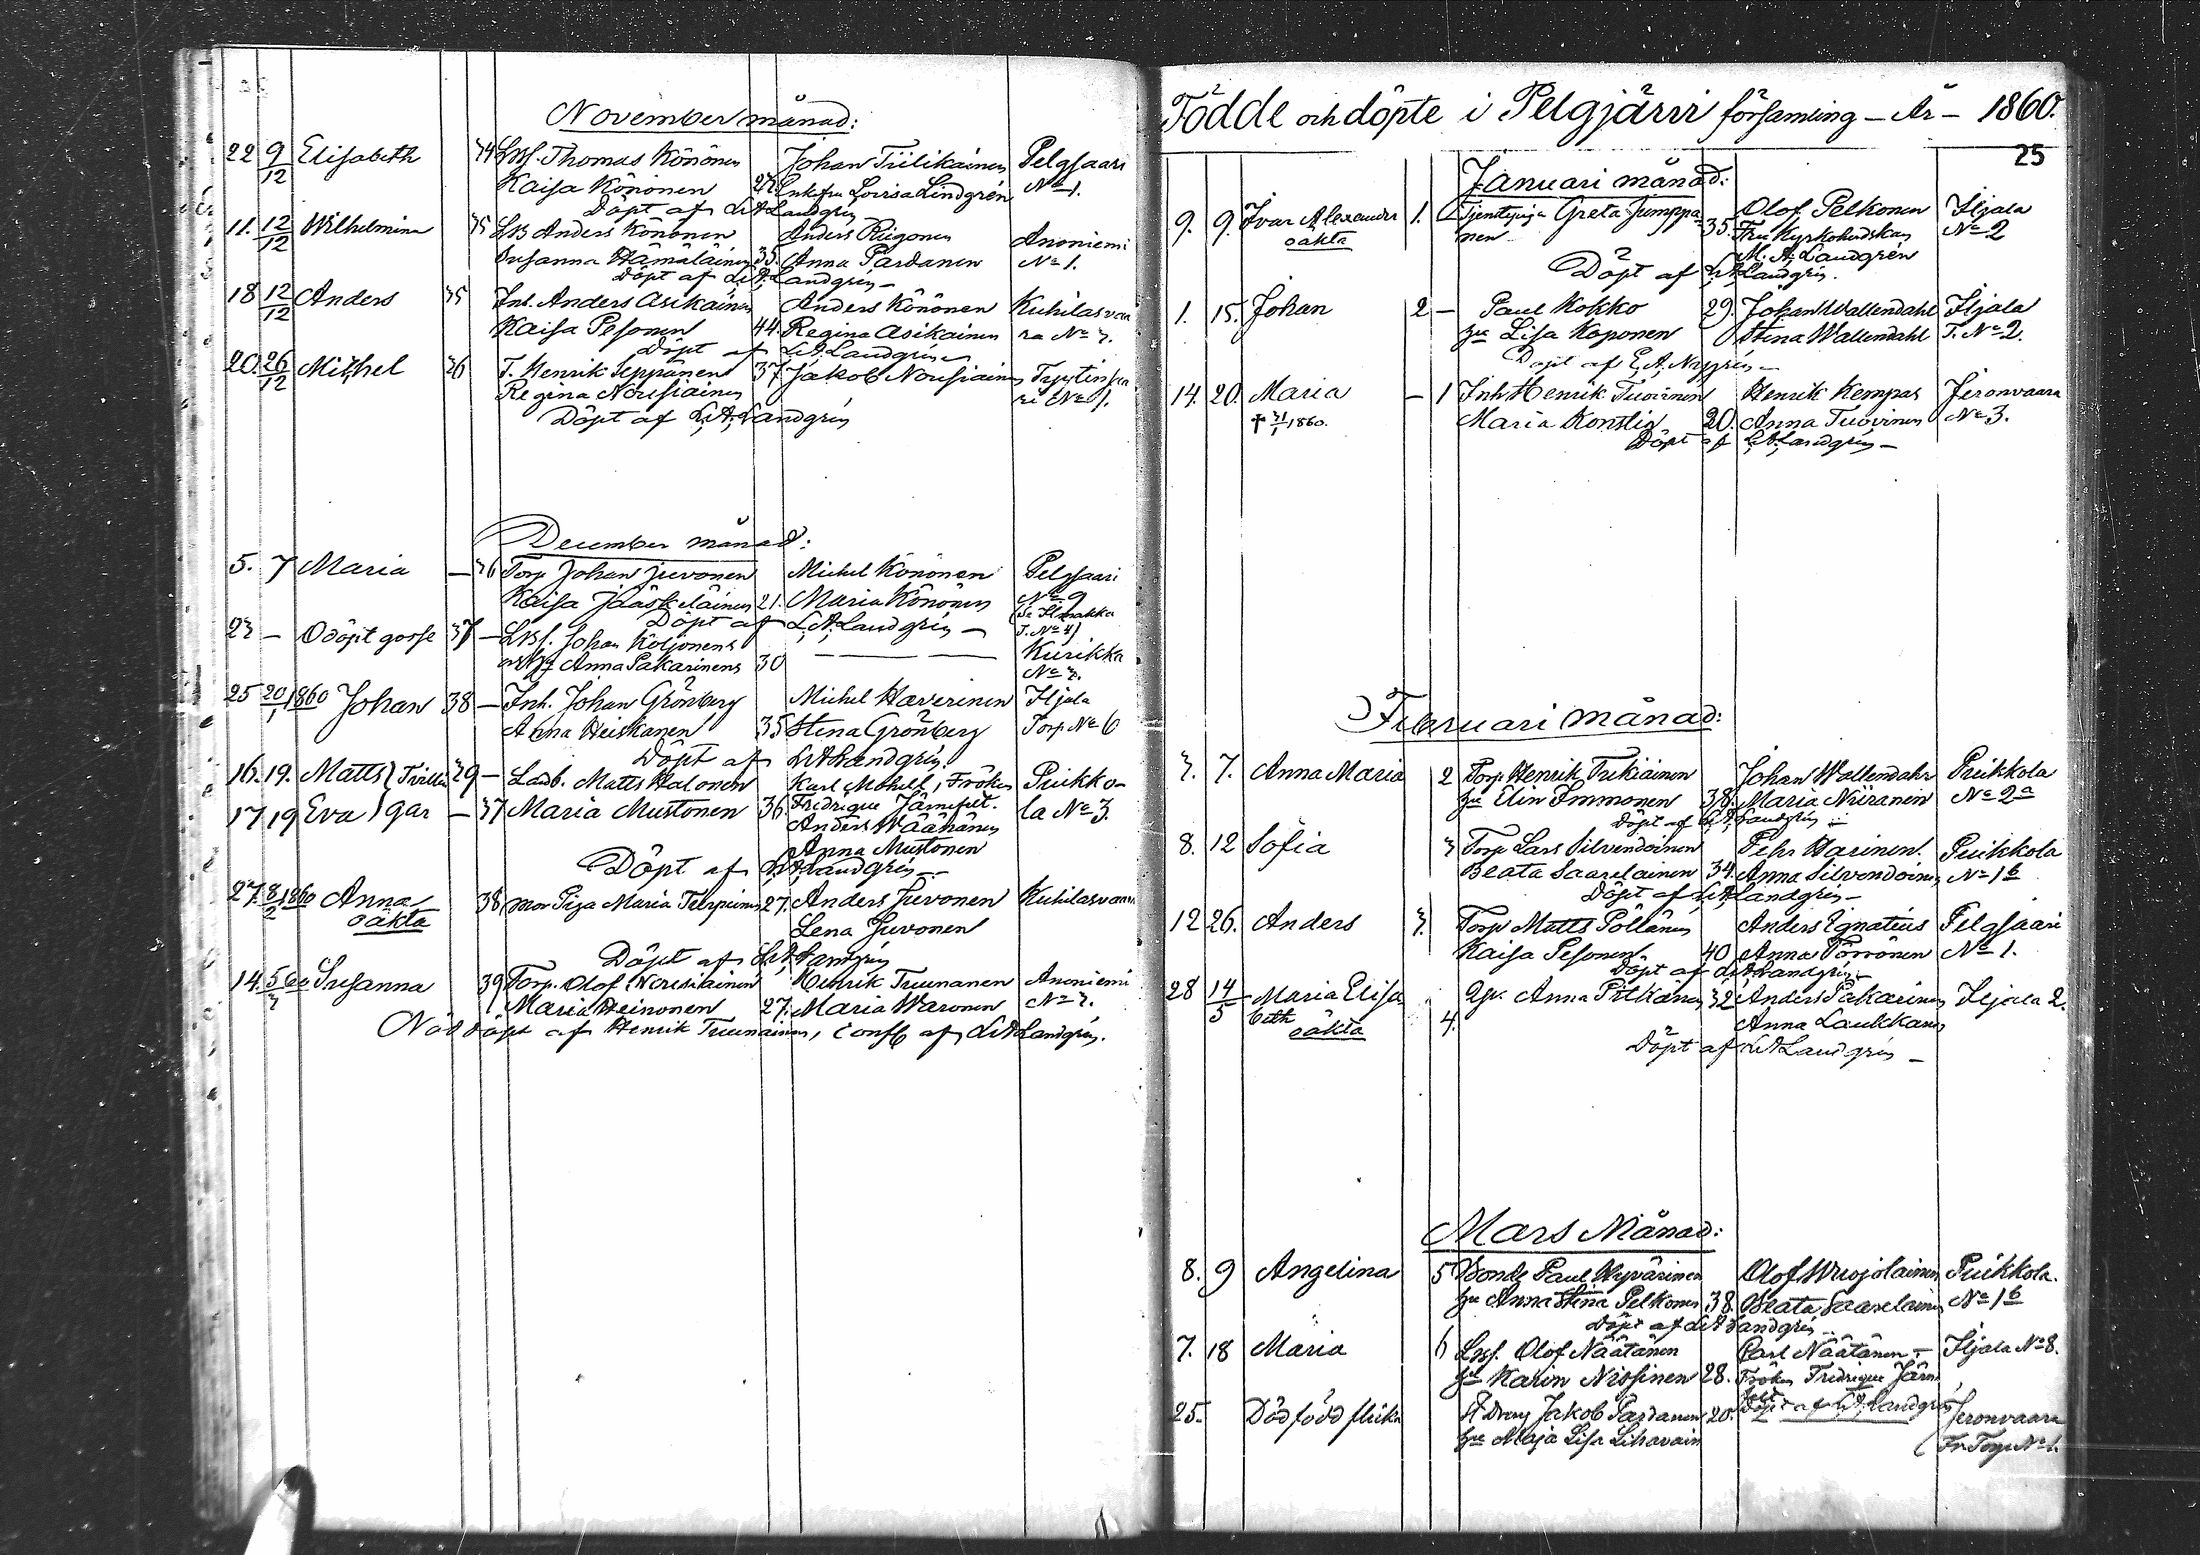 November månad:
22 9/12 Elisabeth 34 Lbf. Thomas Könönen Johan Tiilikainen Pelgjaari
Kaisa Könönen 27 Enkefru Lovisa Lindgrén No 1.
Döpt af L.A. Landgrén
11. 12/12 Wilhelmina 35 Anders Könönen Anders Riigonen Anoniemi
Susanna Hämäläinen 33. Anna Pardanen No 1.
Döpt af L.A. Landgrén –
18 12/12 Anders 35 Inh. Anders Asikainen Anders Könönen Kuhilasvaa
Kaisa Pesonen 44. Regina Asikainen ra No 3.
Döpt af L.A. Landgrén –
20. 26/12 Michel 36 T. Henrik Seppänen 37 Jakob Nousiainen
Regina Nousiainen No 1.
Döpt af L.A. Landgrén
December månad:
5. 7 Maria – 36 Torp Johan Juvonen Michel Könönen Pelgjaari
Kaisa Jääskeläinen 21. Maria Könönen No 9
Döpt af L.A. Landgrén –
23 – Odöpt gosse 37 – Lbf. Johan Koljonens Kurikka
Anna Pakarinens 30 – – – No 3.
25 20/1 1860 Johan 38 – Inh. Johan Grönberg Michel Haverinen Iljala
Anna Heiskanen 35 Stina Grönberg Torp No 6
Döpt af L.A. Landgrén.
16. 19. Matts } Tvillin 29 – Ladb. Matts Halonen Karl Mohell, Fröken Puikko-
17 19 Eva } gar – 37 Maria Mustonen 36. Fredrique Järnefelt. la No 3.
Anders Väänänen
Anna Mustonen
Döpt af L.A. Landgrén –
27. 8/2 1860 Anna 38, mor Piga Maria 27. Anders Juvonen Kuhilasvaara
oäkta Lena Juvonen
Döpt af L.A. Landgrén
14. 5/3 60 Susanna 39 Torp. Olof Henrik Tuunanen Anoniemi
Maria Heinonen 27. Maria Waronen No 3.
Nöddöpt af Henrik Tuunainen, conf. af L.A. Landgrén.
Födde och döpte i Pelgjärvi församling – År – 1860.
25
Januari månad:
9. 9. Ivar Alexander 1. Tjenstepiga Greta Jumppa- Olof Pelkonen Iljala
oäkta nen 35. Fru Kyrkoherdskan No 2
M. A. Landgrén
Döpt af L.A. Landgrén.
1. 15. Johan 2 – Paul Kokko 29. Johan Wallendahl Iljala
hu Lisa Koponen Stina Wallendahl T. No 2.
Döpt af E. A. Nygrén –
14. 20. Maria – 1 Inh Henrik Tuovinen Henrik Kempas Jeronvaara
† 31/1 1860. Maria Konstig 20. Anna Tuovinen No 3.
Döpt af L.A. Landgrén –
Februari månad:
3. 7. Anna Maria 2 Torp Henrik Tukiainen Johan Wallendahr Puikkola
hu Elin Immonen 38. Maria Niiranen No 2a
Döpt af L.A. Landgrén –
8. 12 Sofia 3 Torp Lars Silvendoinen Pehr Harinen. Puikkola
Beata Saarelainen 34. Anna Silvendoinen No 1b
Döpt af L.A. Landgrén –
12 26. Anders 3. Torp Matts Pöllänen Anders Egnatius Pelgjaari
Kaisa Pesonen 40 Anna Törrönen No 1.
Döpt af L.A. Landgrén –
28 14/5 Maria Elisa Anna Pitkänen 32 Anders Pakarinen Iljala 2.
beth 4. Anna Laukkanen
oäkta
Döpt af L.A. Landgrén –
Mars Månad:
8. 9 Angelina 5 Bonde Paul Hyvärinen Olof Wuojolainen Puikkola.
hu Anna Stina Pelkonen 38. Beata Saarelainen No 1b
Döpt af L.A. Landgrén
7. 18 Maria 6 Lbf. Olof Näätänen Carl Näätänen – Iljala No 8.
hu Karin Nissinen 28. Fröken Fridrique Järne
felt
Döpt af L.A. Landgrén
25. Dödfödd flicka Dreng Jakob Pardanen 20. Jeronvaara
hu Maja Lisa (Fr Torp No 1.